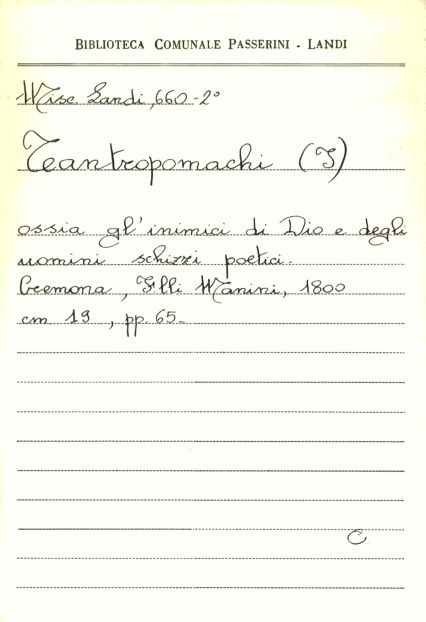 BIBLIOTECA COMUNALE PASSERINI - LANDI
Misc. Landi, 660-2°
Teantropomachi (I)
ossia gl'inimici di Dio e degli
uomini schizzi poetici.
Cremona, F.lli Manini, 1800
cm 19, pp. 65-
C